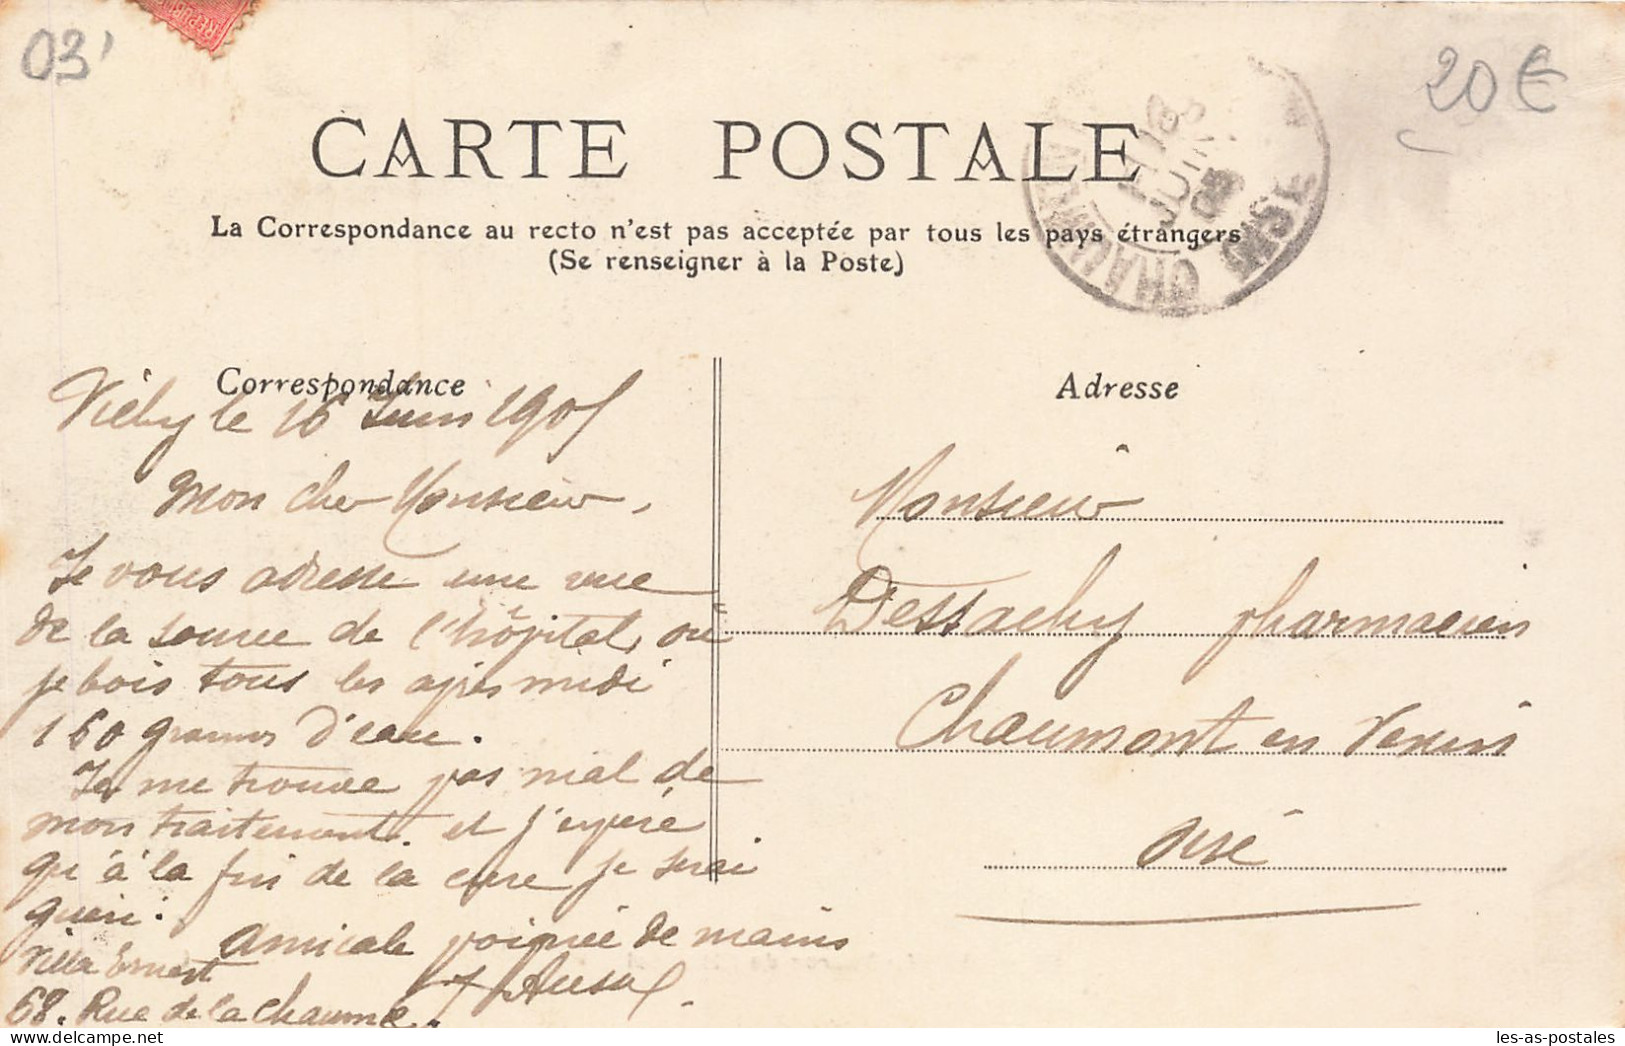 03'
REPUBL
20€
CARTE POSTALE
La Correspondance au recto n'est pas acceptée par tous les pays étrangers
(Se renseigner à la Poste)
CHAUMONT OISE
JUIN
05
Correspondance
Vichy le 16 Juin 1905
Mon cher Monsieur,
Je vous adresse une vue
de la source de l'hôpital, ou
je bois tous les après midi
160 grammes d'eau.
Je me trouve pas mal de
mon traitement. et j'espère
qu'à la fin de la cure je serai
guéri.
Amicale poignée de mains
Villa Ernest
68. Rue de la Chaume.
Adresse
Monsieur
Dessachy pharmacien
Chaumont en Vexin
Oise
les-as-postales